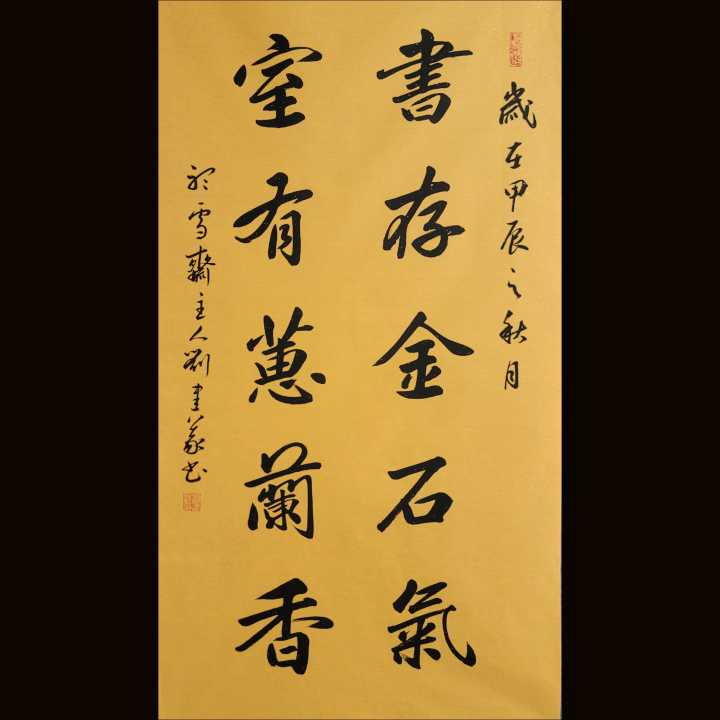 歲在甲辰之秋月
書存金石氣
室有蕙蘭香
雪齋主人劉書